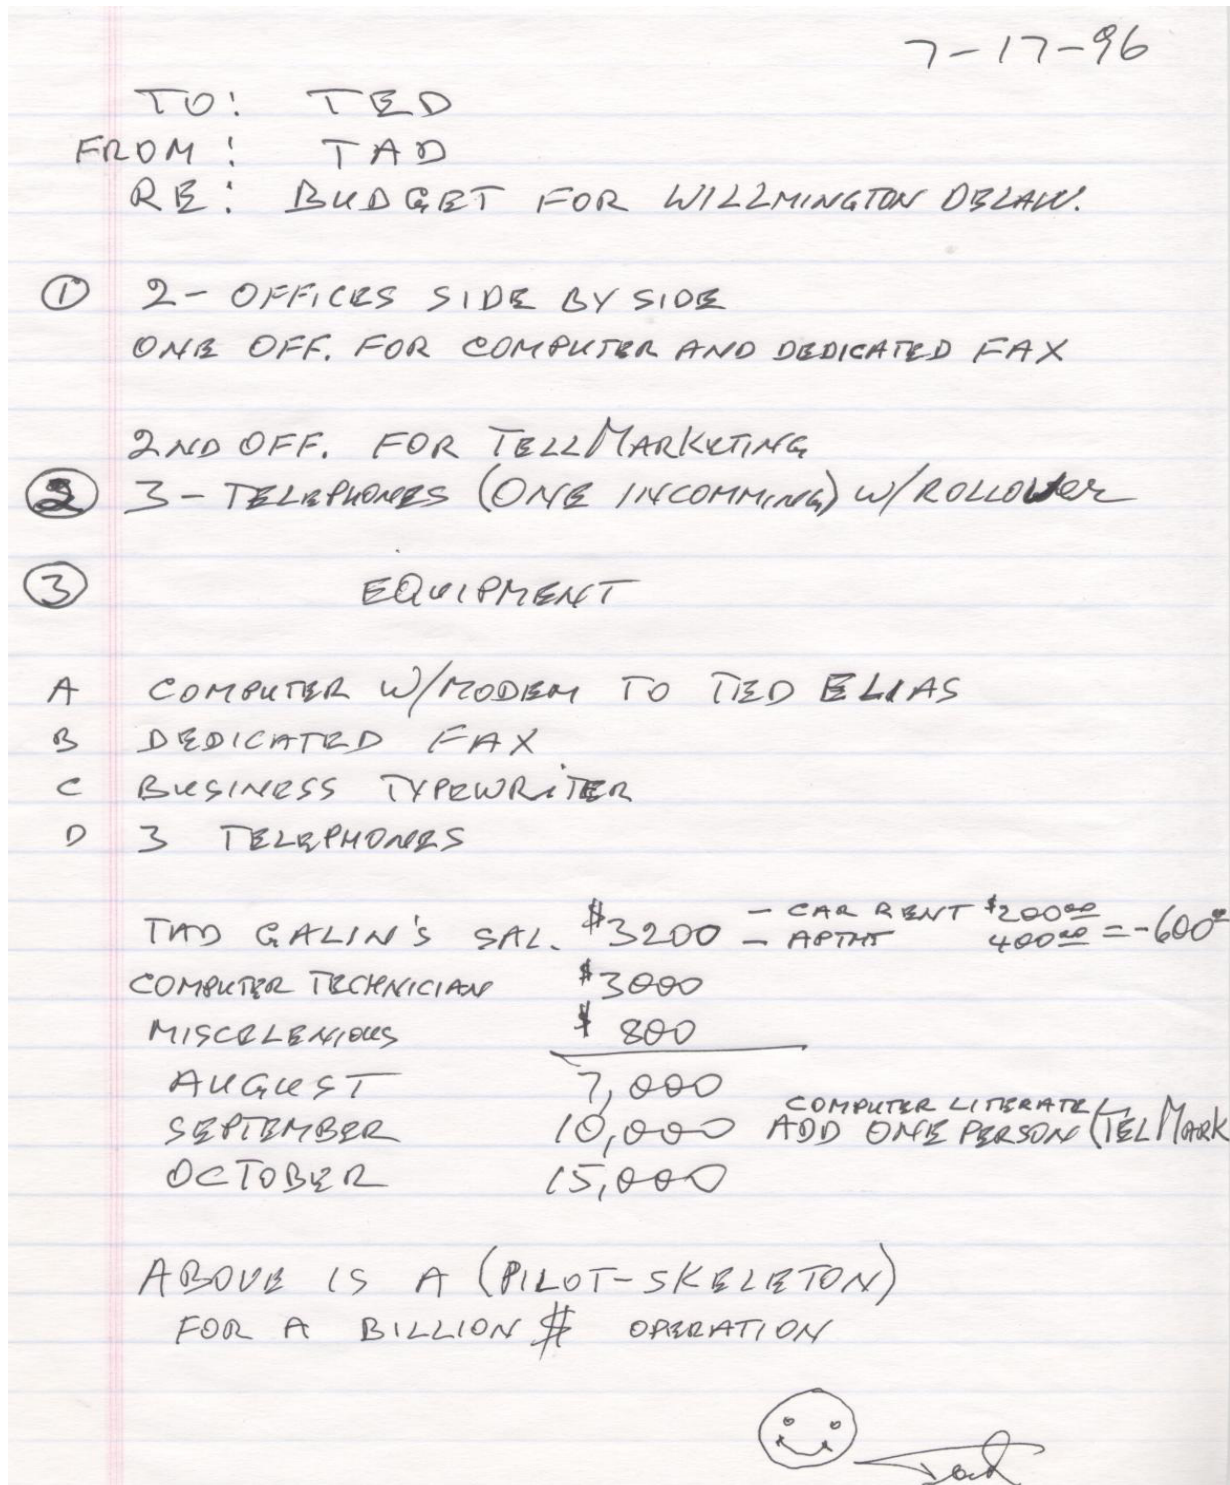 7-17-96
TO: TED
FROM: TAD
RE: BUDGET FOR WILLMINGTON DELAW.
① 2- OFFICES SIDE BY SIDE
ONE OFF. FOR COMPUTER AND DEDICATED FAX
2ND OFF. FOR TELLMARKETING
② 3- TELEPHONES (ONE INCOMMING) W/ROLLOVER
③ EQUIPMENT
A COMPUTER W/MODEM TO TED ELIAS
B DEDICATED FAX
C BUSINESS TYPEWRITER
D 3 TELEPHONES
TAD GALIN'S SAL. $3200 - CAR RENT $200.00
- APTMT 400.00 = -600.00
COMPUTER TECHNICIAN $3000
MISCELENIOUS $ 800
AUGUST 7,000
SEPTEMBER 10,000 COMPUTER LITERATE
ADD ONE PERSON (TELMARK
OCTOBER 15,000
ABOVE IS A (PILOT-SKELETON)
FOR A BILLION $ OPERATION
Tad